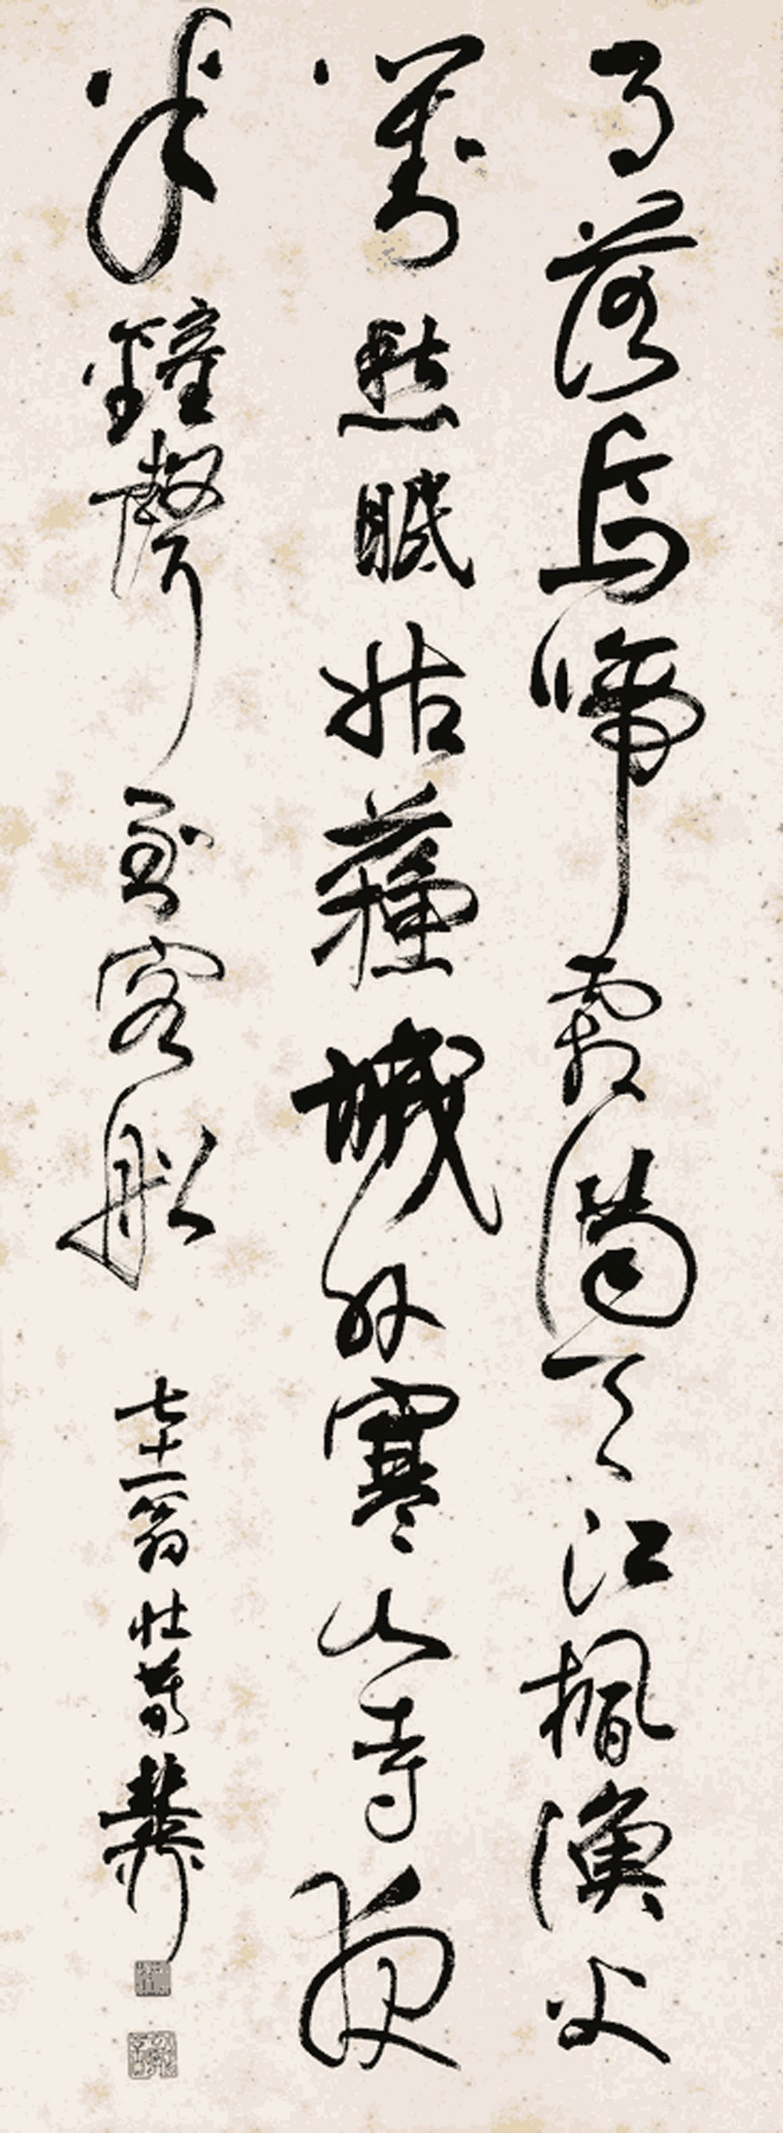 月落烏啼霜滿天江楓漁火
對愁眠姑蘇城外寒山寺夜
半鐘聲到客船
七十一翁壯暮